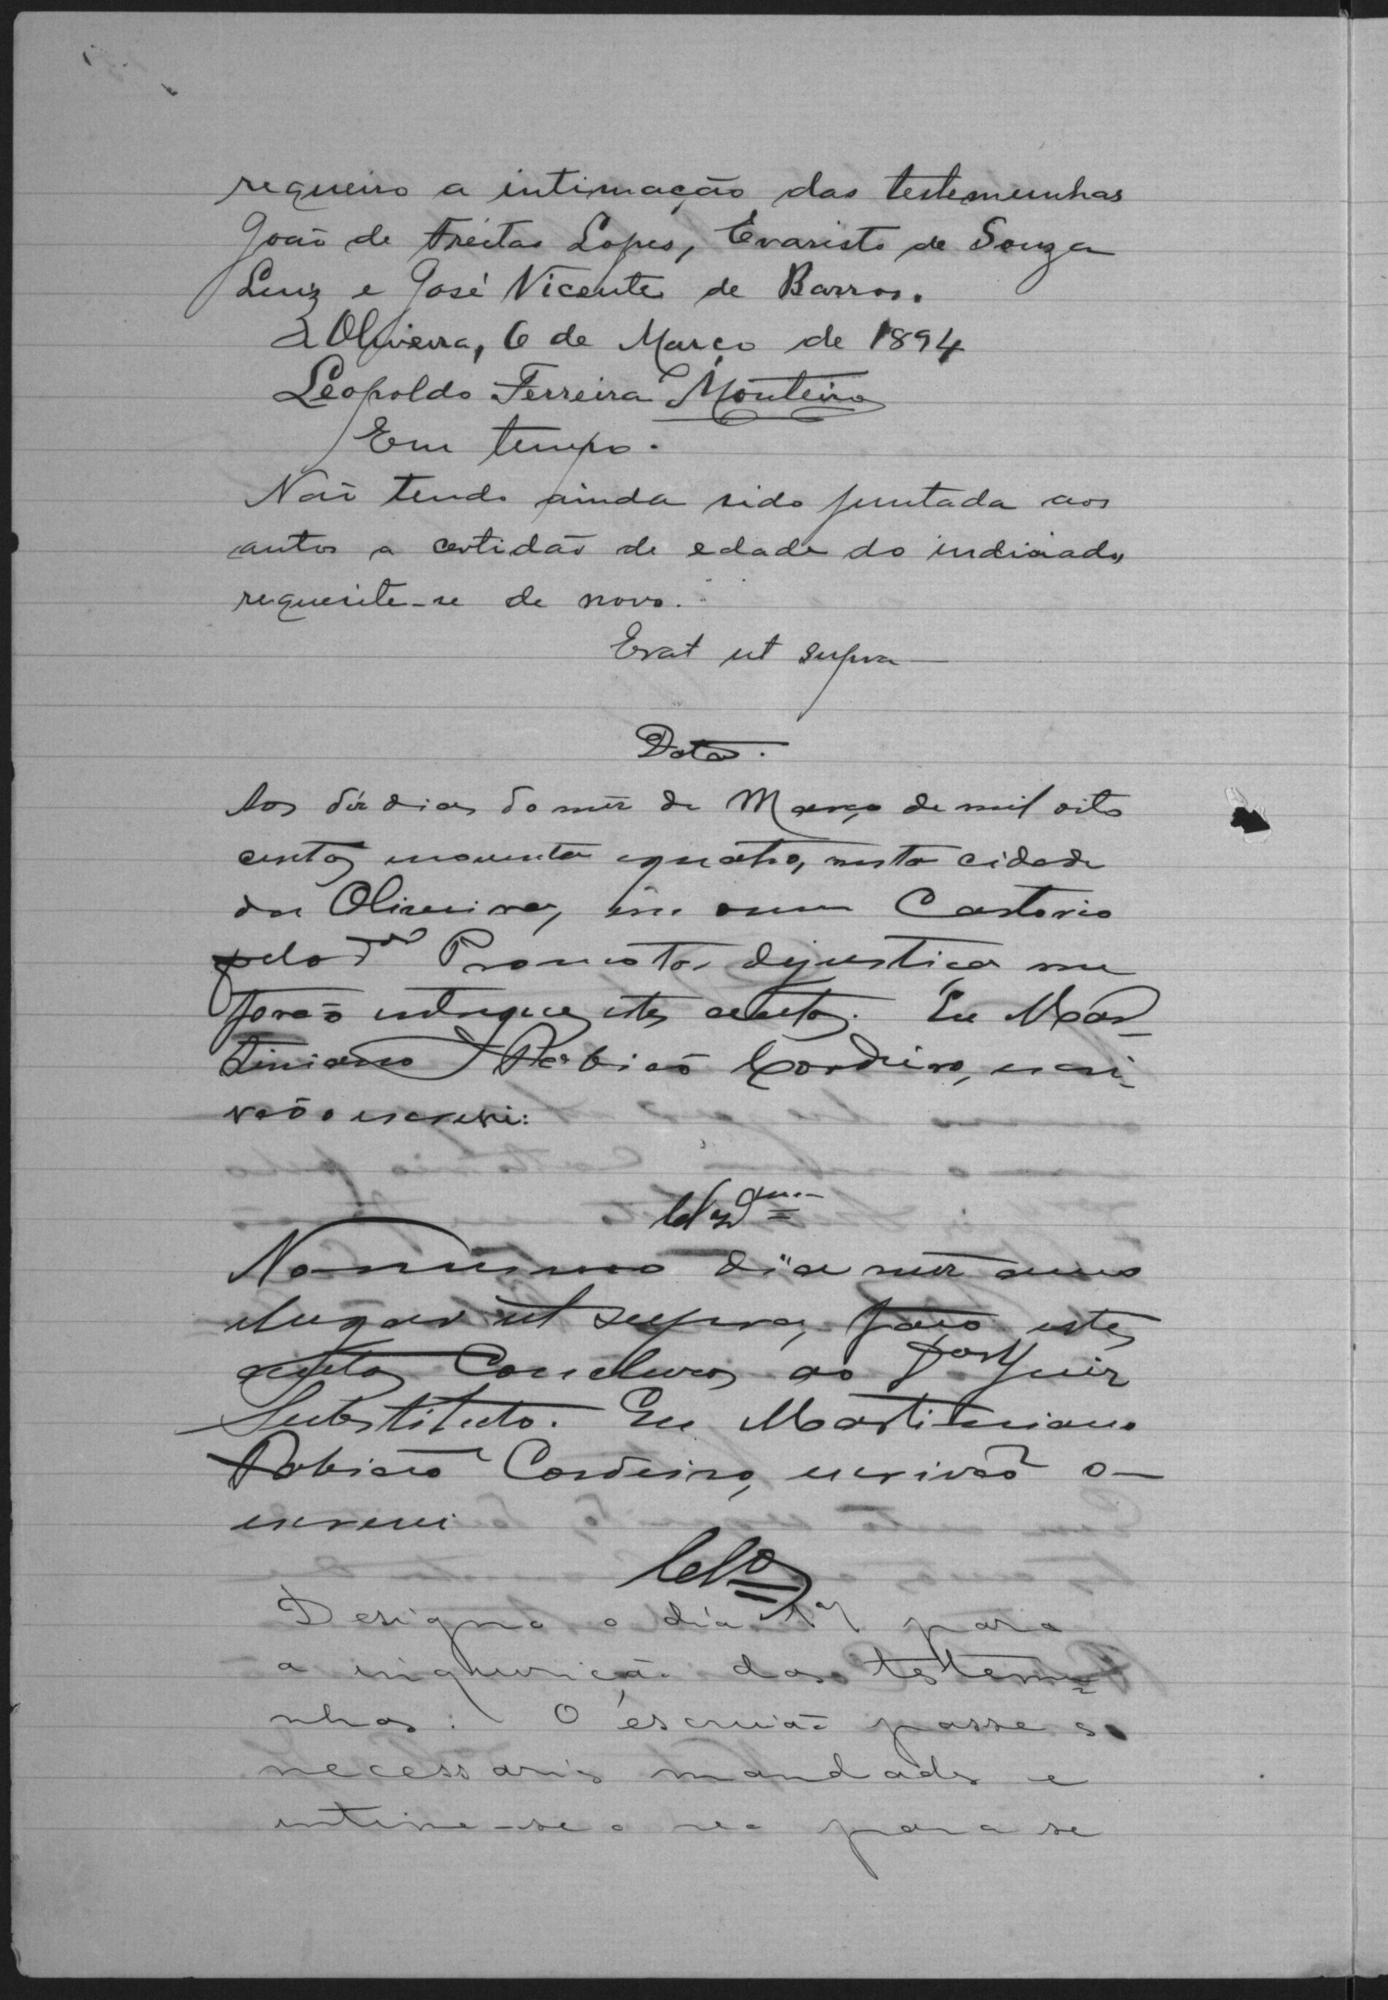 requeiro a intimação das testemunhas
João de Freitas Lopes, Evaristo de Souza
Luz e José Vicente de Barros.
Oliveira, 6 de Março de 1894
Leopoldo Ferreira Monteiro
Em tempo.
Não tendo ainda sido juntada aos
autos a certidão de edade do indiciado,
requesite-se de novo.
Erat ut supra
Data.
Aos dez dias do mez de Março de mil oito
centos noventa e quatro, nesta cidade
da Oliveira, em meu Cartorio
pelo Promotor de justiça me
forão entregues estes autos. Eu Mar-
tiniano Rabicó Cordeiro, escri-
vão o escrevi:
Clzam
No mesmo dia mez anno
e lugar ut supra, faço estes
autos Conclusos ao Dor Juiz
Substituto. Eu Martiniano
Rabicó Cordeiro, escrivão o
escrevi
Clos
Designo o dia para
a inquirição das testemu-
nhas: O escrivão passe os
necessarios mandados e
intime-se o reo para se